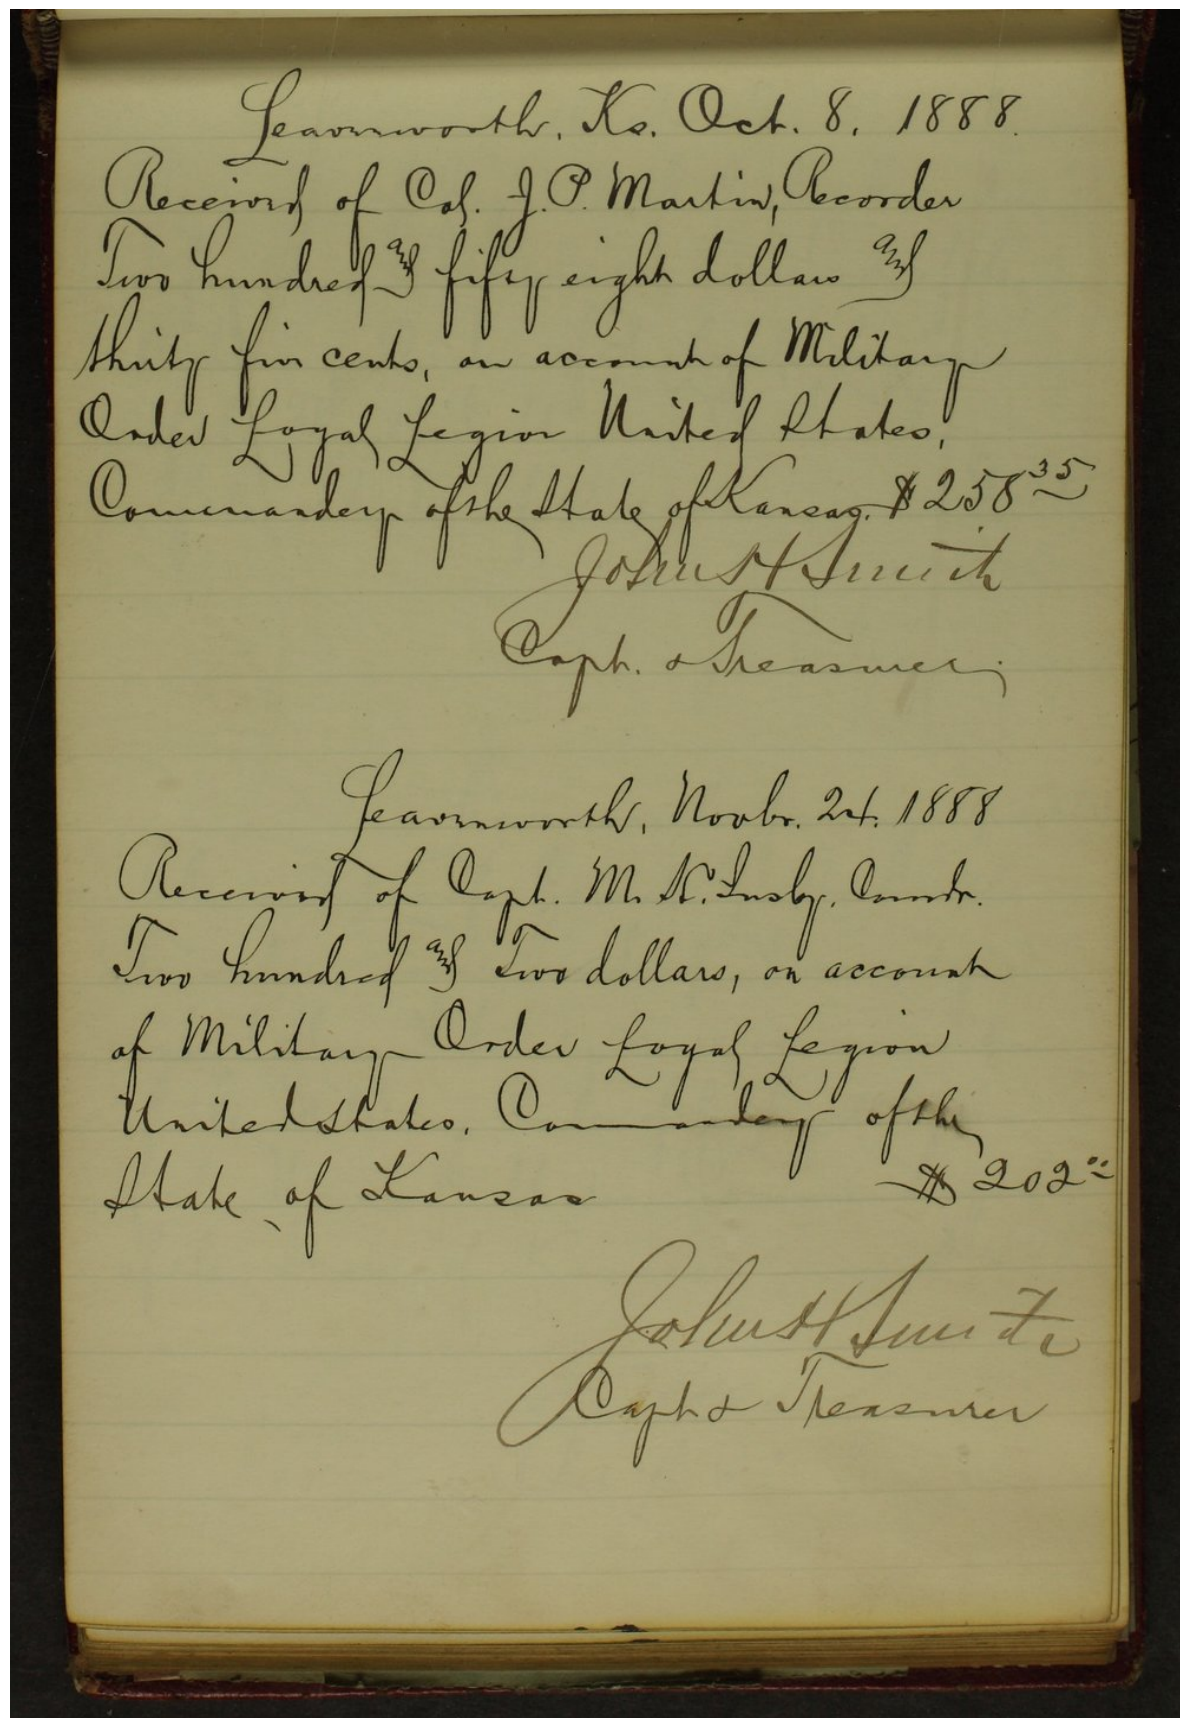 Leavenworth, Ks. Oct. 8, 1888.
Received of Col. J. P. Martin, Recorder
Two hundred and fifty eight dollars and
thirty five cents, on account of Military
Order Loyal Legion United States,
Commandery of the State of Kansas. $258 35
John H Smith
Capt. & Treasurer
Leavenworth, Novbr. 24. 1888
Received of Capt. M. H. Insley, Comdr.
Two hundred and Two dollars, on account
of Military Order Loyal Legion
United States. Commandery of the
State of Kansas $ 202 00
John H Smith
Capt & Treasurer